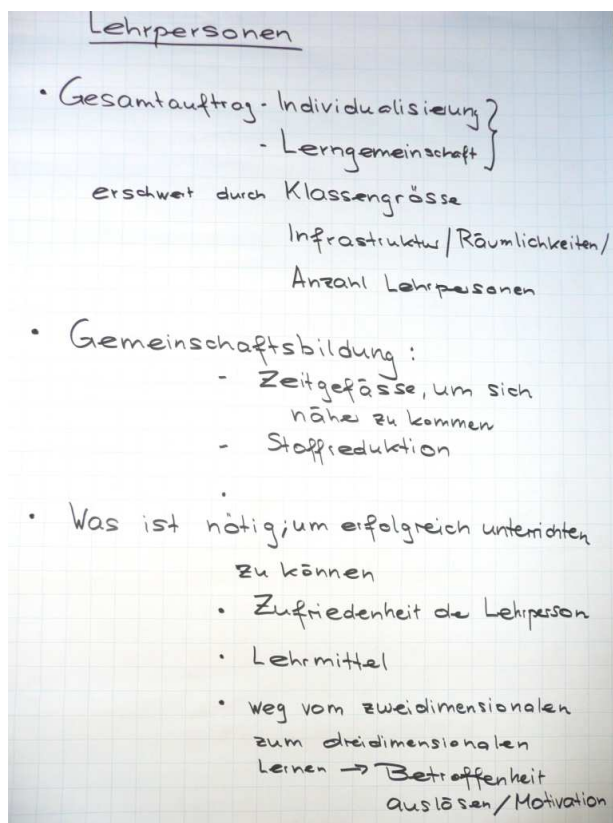 Lehrpersonen
• Gesamtauftrag - Individualisierung }
- Lerngemeinschaft }
erschwert durch Klassengrösse
Infrastruktur / Räumlichkeiten /
Anzahl Lehrpersonen
• Gemeinschaftsbildung :
- Zeitgefässe, um sich
näher zu kommen
- Stoffreduktion
.
• Was ist nötig, um erfolgreich unterrichten
zu können
• Zufriedenheit der Lehrperson
• Lehrmittel
• weg vom zweidimensionalen
zum dreidimensionalen
Lernen → Betroffenheit
auslösen / Motivation